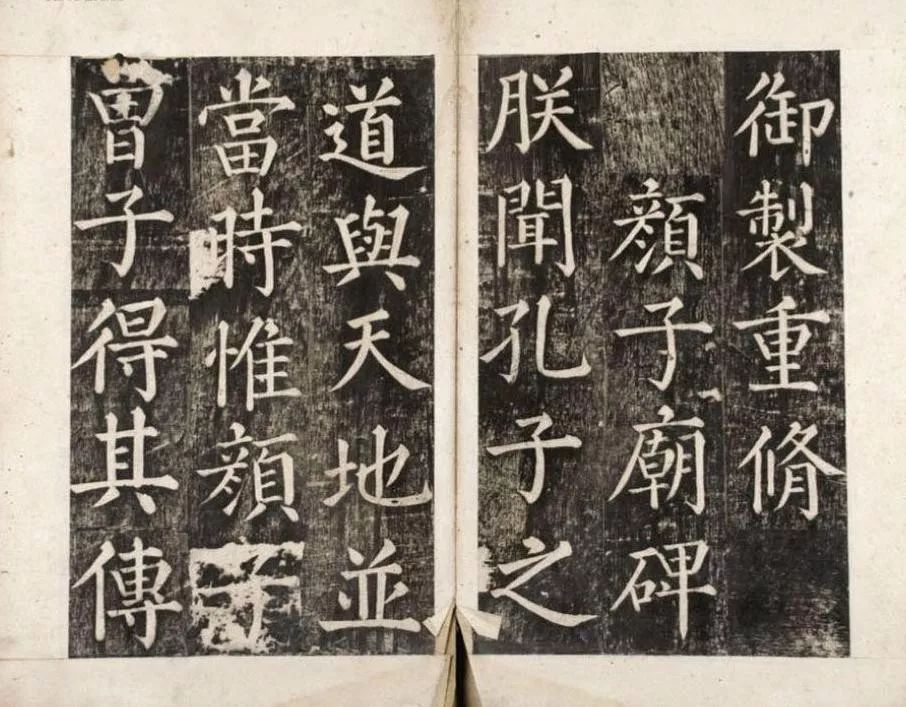 御製重脩
顔子廟碑
朕聞孔子之
道與天地並
當時惟顔子
曽子得其傳